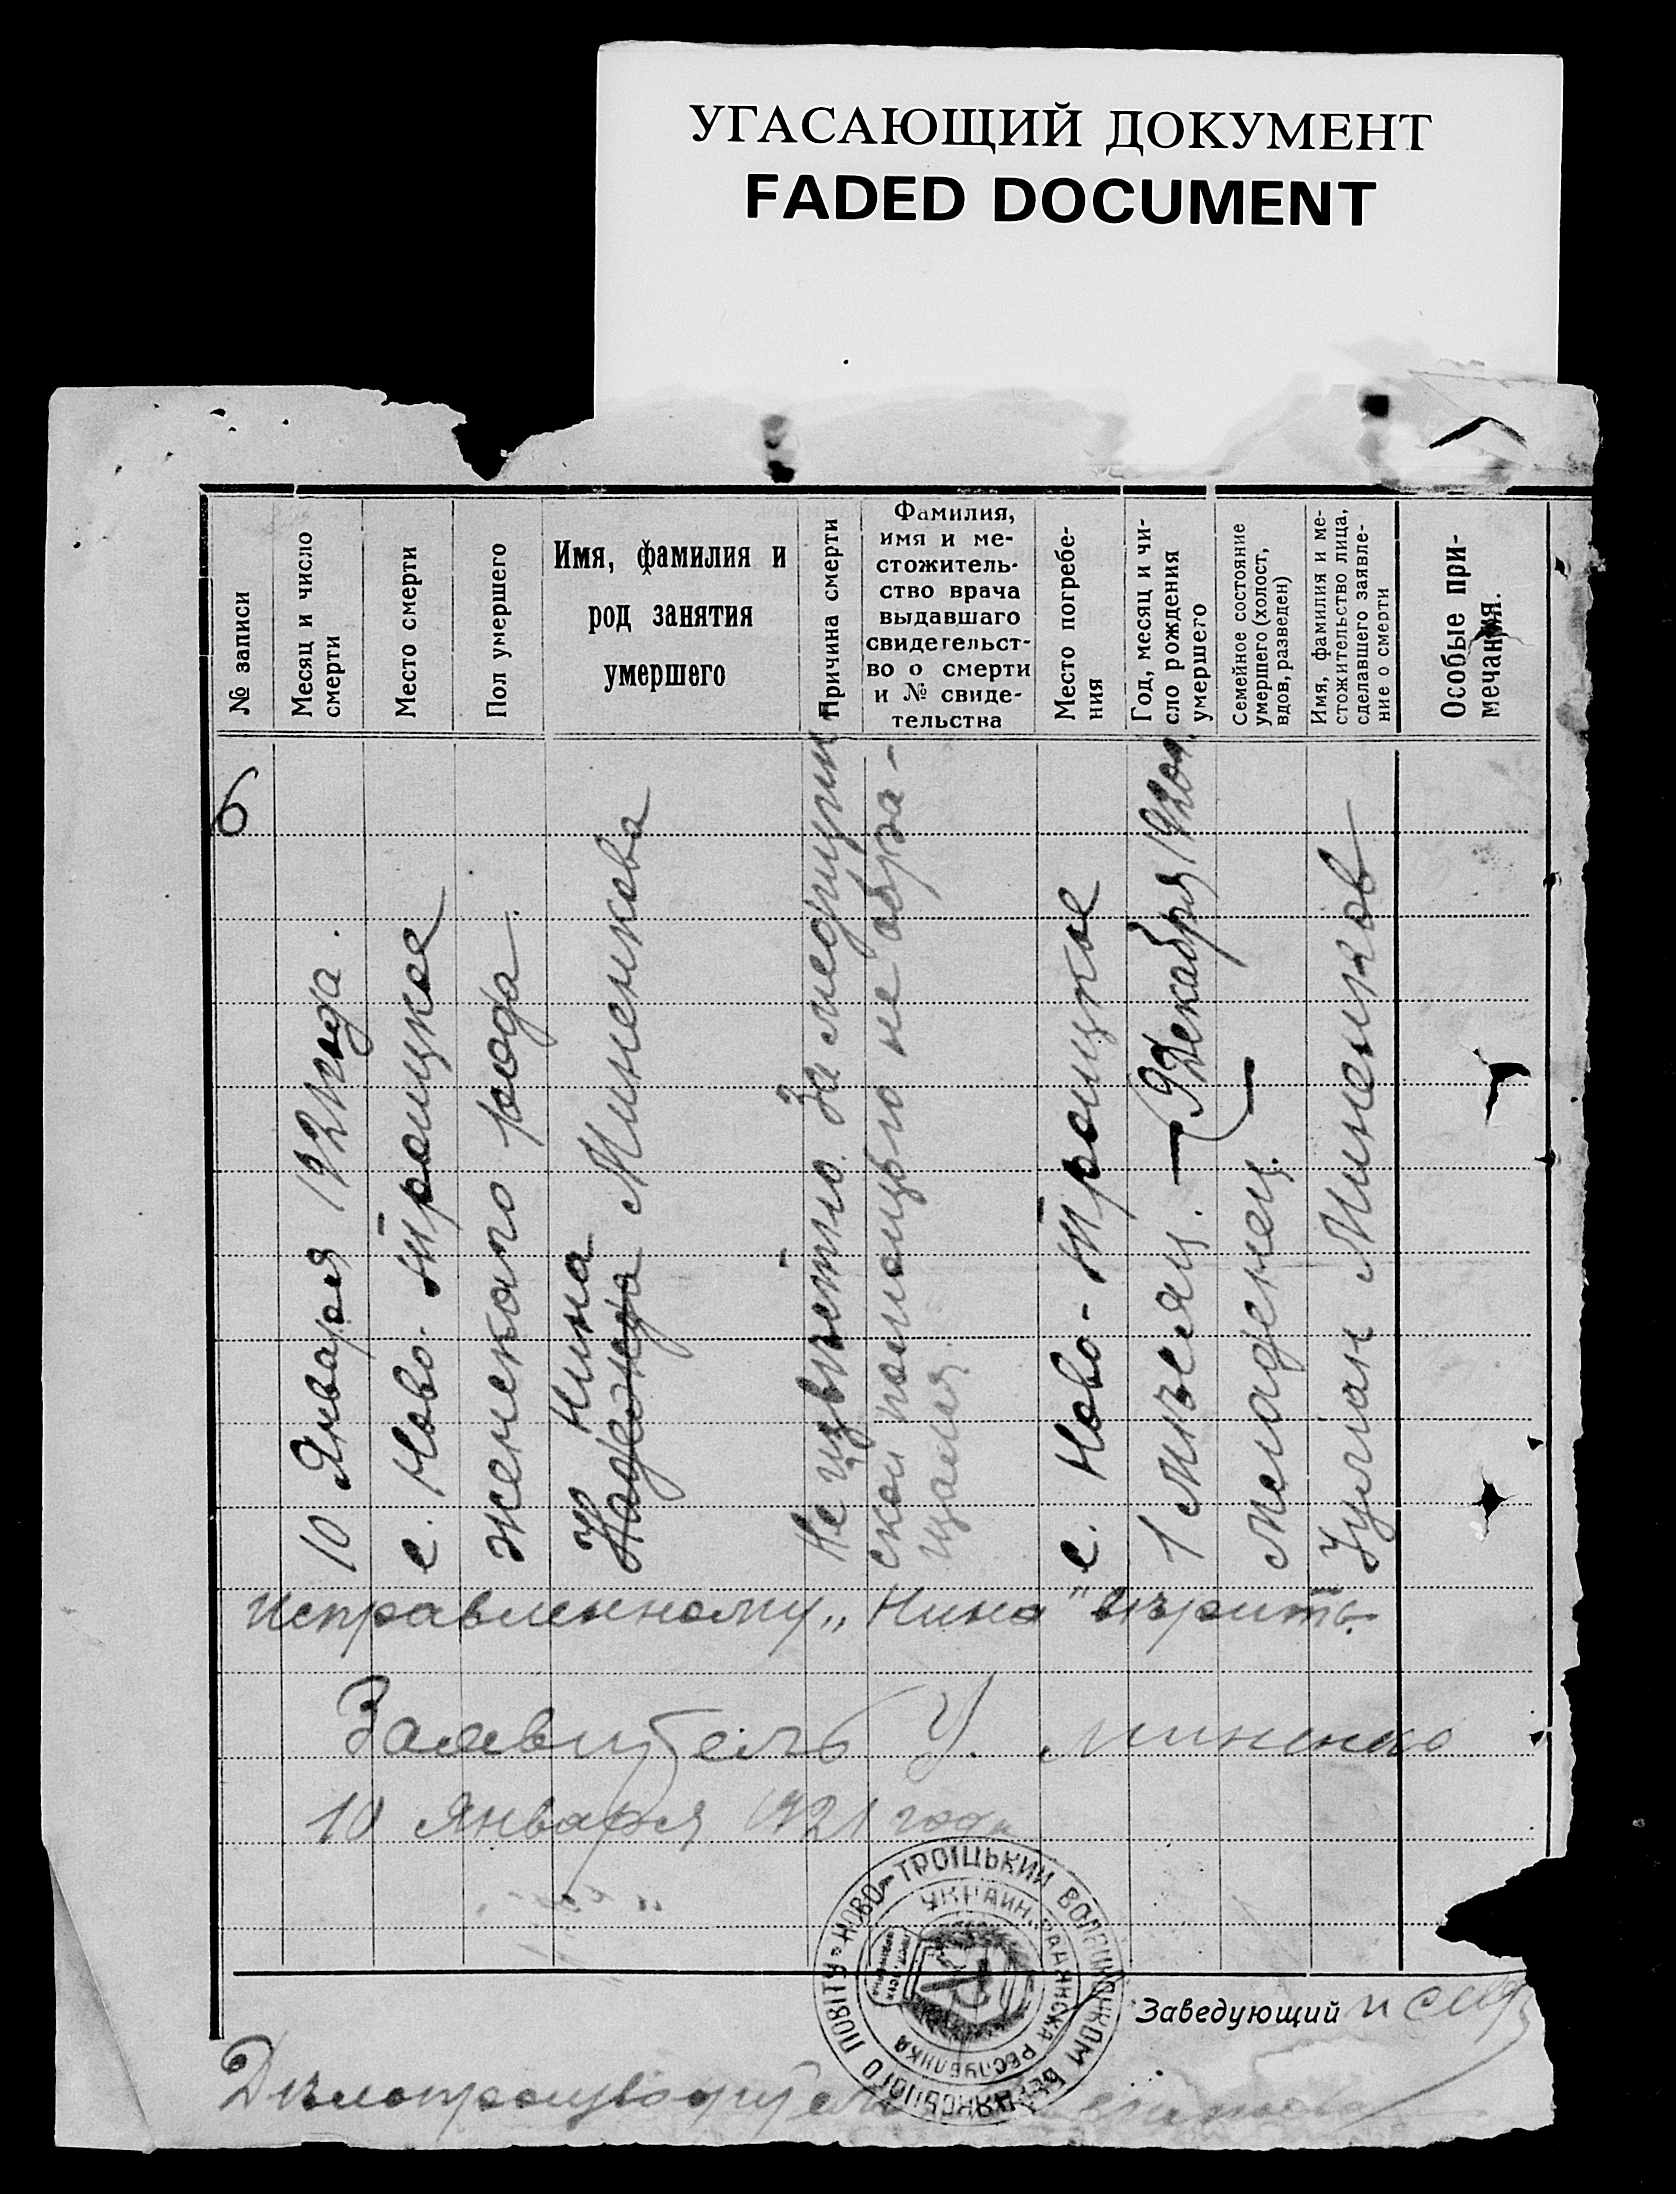 УГАСАЮЩИЙ ДОКУМЕНТ
FADED DOCUMENT
№ записи
Месяц и число
смерти
Место смерти
Пол умершего
Имя, фамилия и
род занятия
умершего
Причина смерти
Фамилия,
имя и ме-
стожитель-
ство врача
выдавшаго
свидетельст-
во о смерти
и № свиде-
тельства
Место погребе-
ния
Год, месяц и чи-
сло рождения
умершего
Семейное состояние
умершего (холост,
вдов, разведен)
Имя, фамилия и ме-
стожительство лица,
сделавшего заявле-
ние о смерти
Особые при-
мечания.
6
10 Января 1921 года.
с. Ново-Троицкое
женского рода.
Нина
Надежда Миненкова
Не извѣстно. За медицин
ской помощью не обра-
щался.
с. Ново-Троицкое
1 мѣсяц. (9 Декабря 1920 г.)
Младенец.
Иулиан Миненков
Исправленному „Нина" вѣрить.
Заявитель У. миненко
10 Января 1921 года
НОВО-ТРОІЦЬКИЙ ВОЛВИКОНКОМ БЕРДЯНСЬКОГО ПОВІТА
УКРАИН. РАДЯНСКА РЕСПУБЛІКА
Заведующий
Дѣлопроизводитель